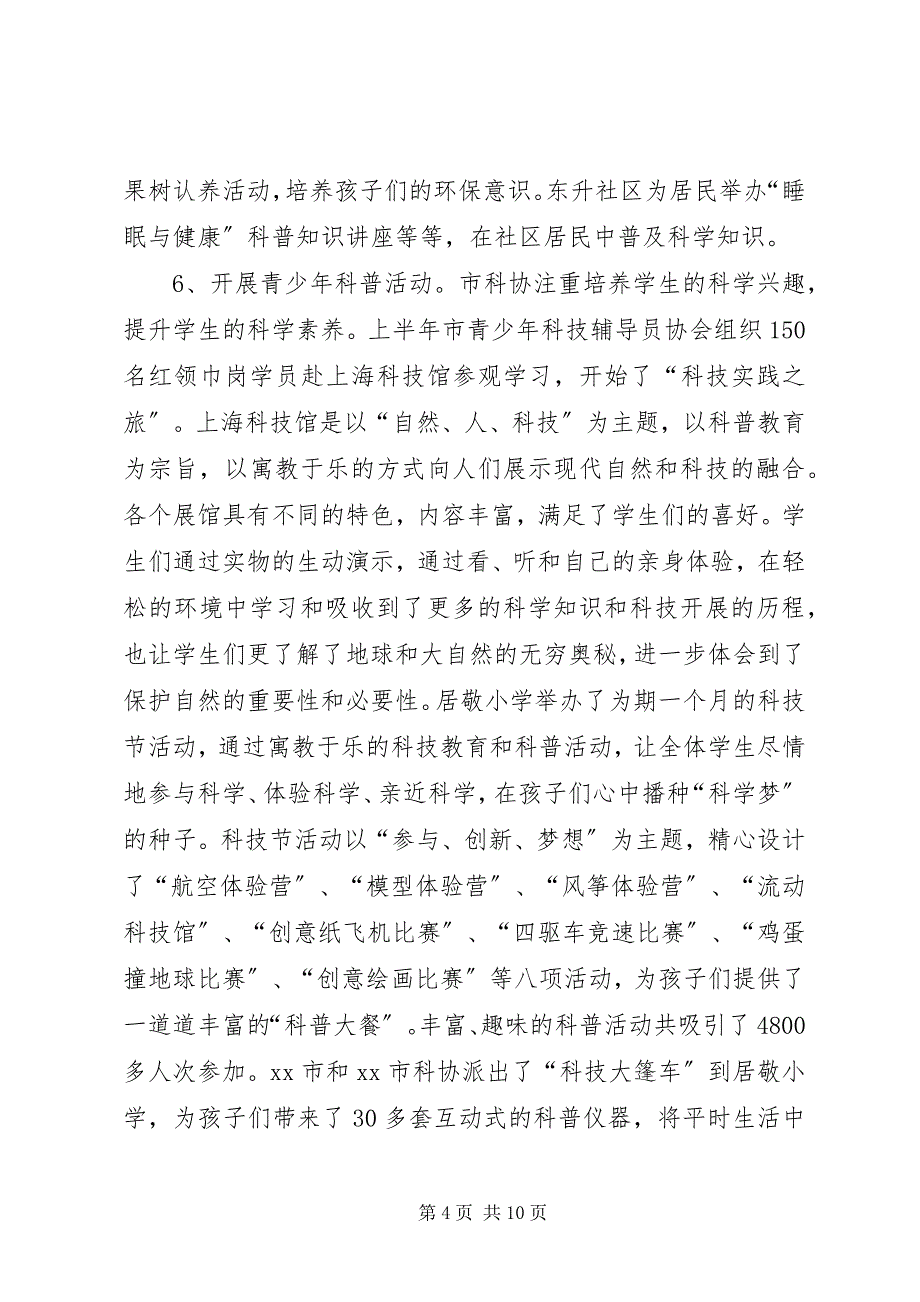 果树认养活动，培养孩子们的环保意识。东升社区为居民举办“睡
眠与健康〞科普知识讲座等等，在社区居民中普及科学知识。
6、开展青少年科普活动。市科协注重培养学生的科学兴趣，
提升学生的科学素养。上半年市青少年科技辅导员协会组织 150
名红领巾岗学员赴上海科技馆参观学习，开始了“科技实践之
旅〞。上海科技馆是以“自然、人、科技〞为主题，以科普教育
为宗旨，以寓教于乐的方式向人们展示现代自然和科技的融合。
各个展馆具有不同的特色，内容丰富，满足了学生们的喜好。学
生们通过实物的生动演示，通过看、听和自己的亲身体验，在轻
松的环境中学习和吸收到了更多的科学知识和科技开展的历程，
也让学生们更了解了地球和大自然的无穷奥秘，进一步体会到了
保护自然的重要性和必要性。居敬小学举办了为期一个月的科技
节活动，通过寓教于乐的科技教育和科普活动，让全体学生尽情
地参与科学、体验科学、亲近科学，在孩子们心中播种“科学梦〞
的种子。科技节活动以“参与、创新、梦想〞为主题，精心设计
了“航空体验营〞、“模型体验营〞、“风筝体验营〞、“流动
科技馆〞、“创意纸飞机比赛〞、“四驱车竞速比赛〞、“鸡蛋
撞地球比赛〞、“创意绘画比赛〞等八项活动，为孩子们提供了
一道道丰富的“科普大餐〞。丰富、趣味的科普活动共吸引了 4800
多人次参加。xx 市和 xx 市科协派出了“科技大篷车〞到居敬小
学，为孩子们带来了 30 多套互动式的科普仪器，将平时生活中
第 4 页 共 10 页